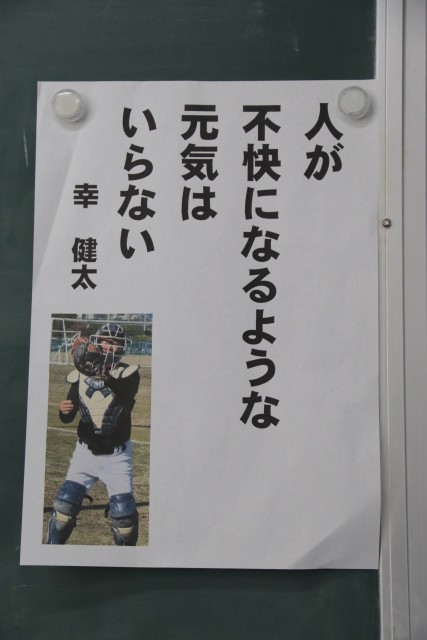 人が
不快になるような
元気は
いらない
幸 健太